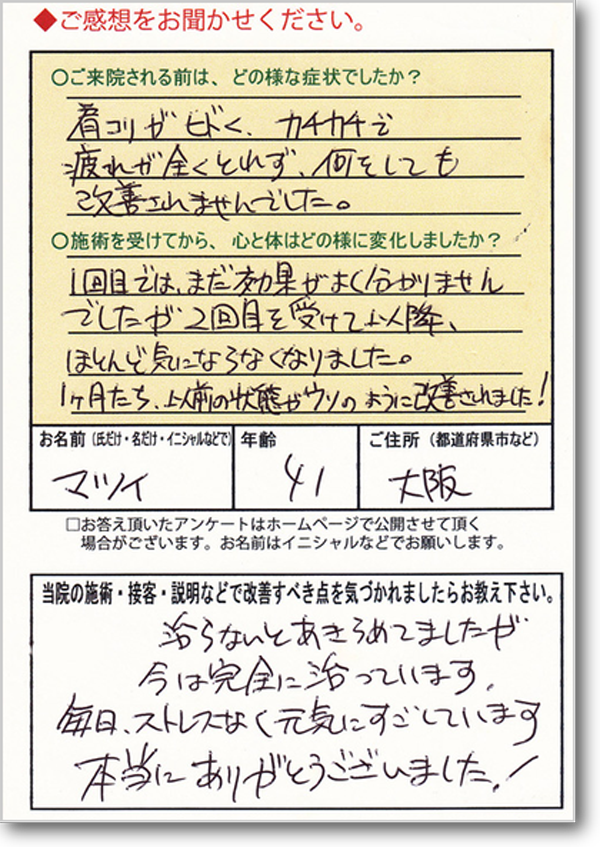 ◆ご感想をお聞かせください。
○ご来院される前は、どの様な症状でしたか？
肩コリがヒドく、カチカチで
疲れが全くとれず、何をしても
改善されませんでした。
○施術を受けてから、心と体はどの様に変化しましたか？
1回目では、まだ効果がよく分かりません
でしたが2回目を受けて以降、
ほとんど気にならなくなりました。
1ヶ月たち、以前の状態がウソのように改善されました！
お名前（氏だけ・名だけ・イニシャルなどで） 年齢 ご住所（都道府県市など）
マツイ 41 大阪
□お答え頂いたアンケートはホームページで公開させて頂く
場合がございます。お名前はイニシャルなどでお願いします。
当院の施術・接客・説明などで改善すべき点を気づかれましたらお教え下さい。
治らないとあきらめてましたが
今は完全に治っています。
毎日、ストレスなく元気にすごしています
本当にありがとうございました！